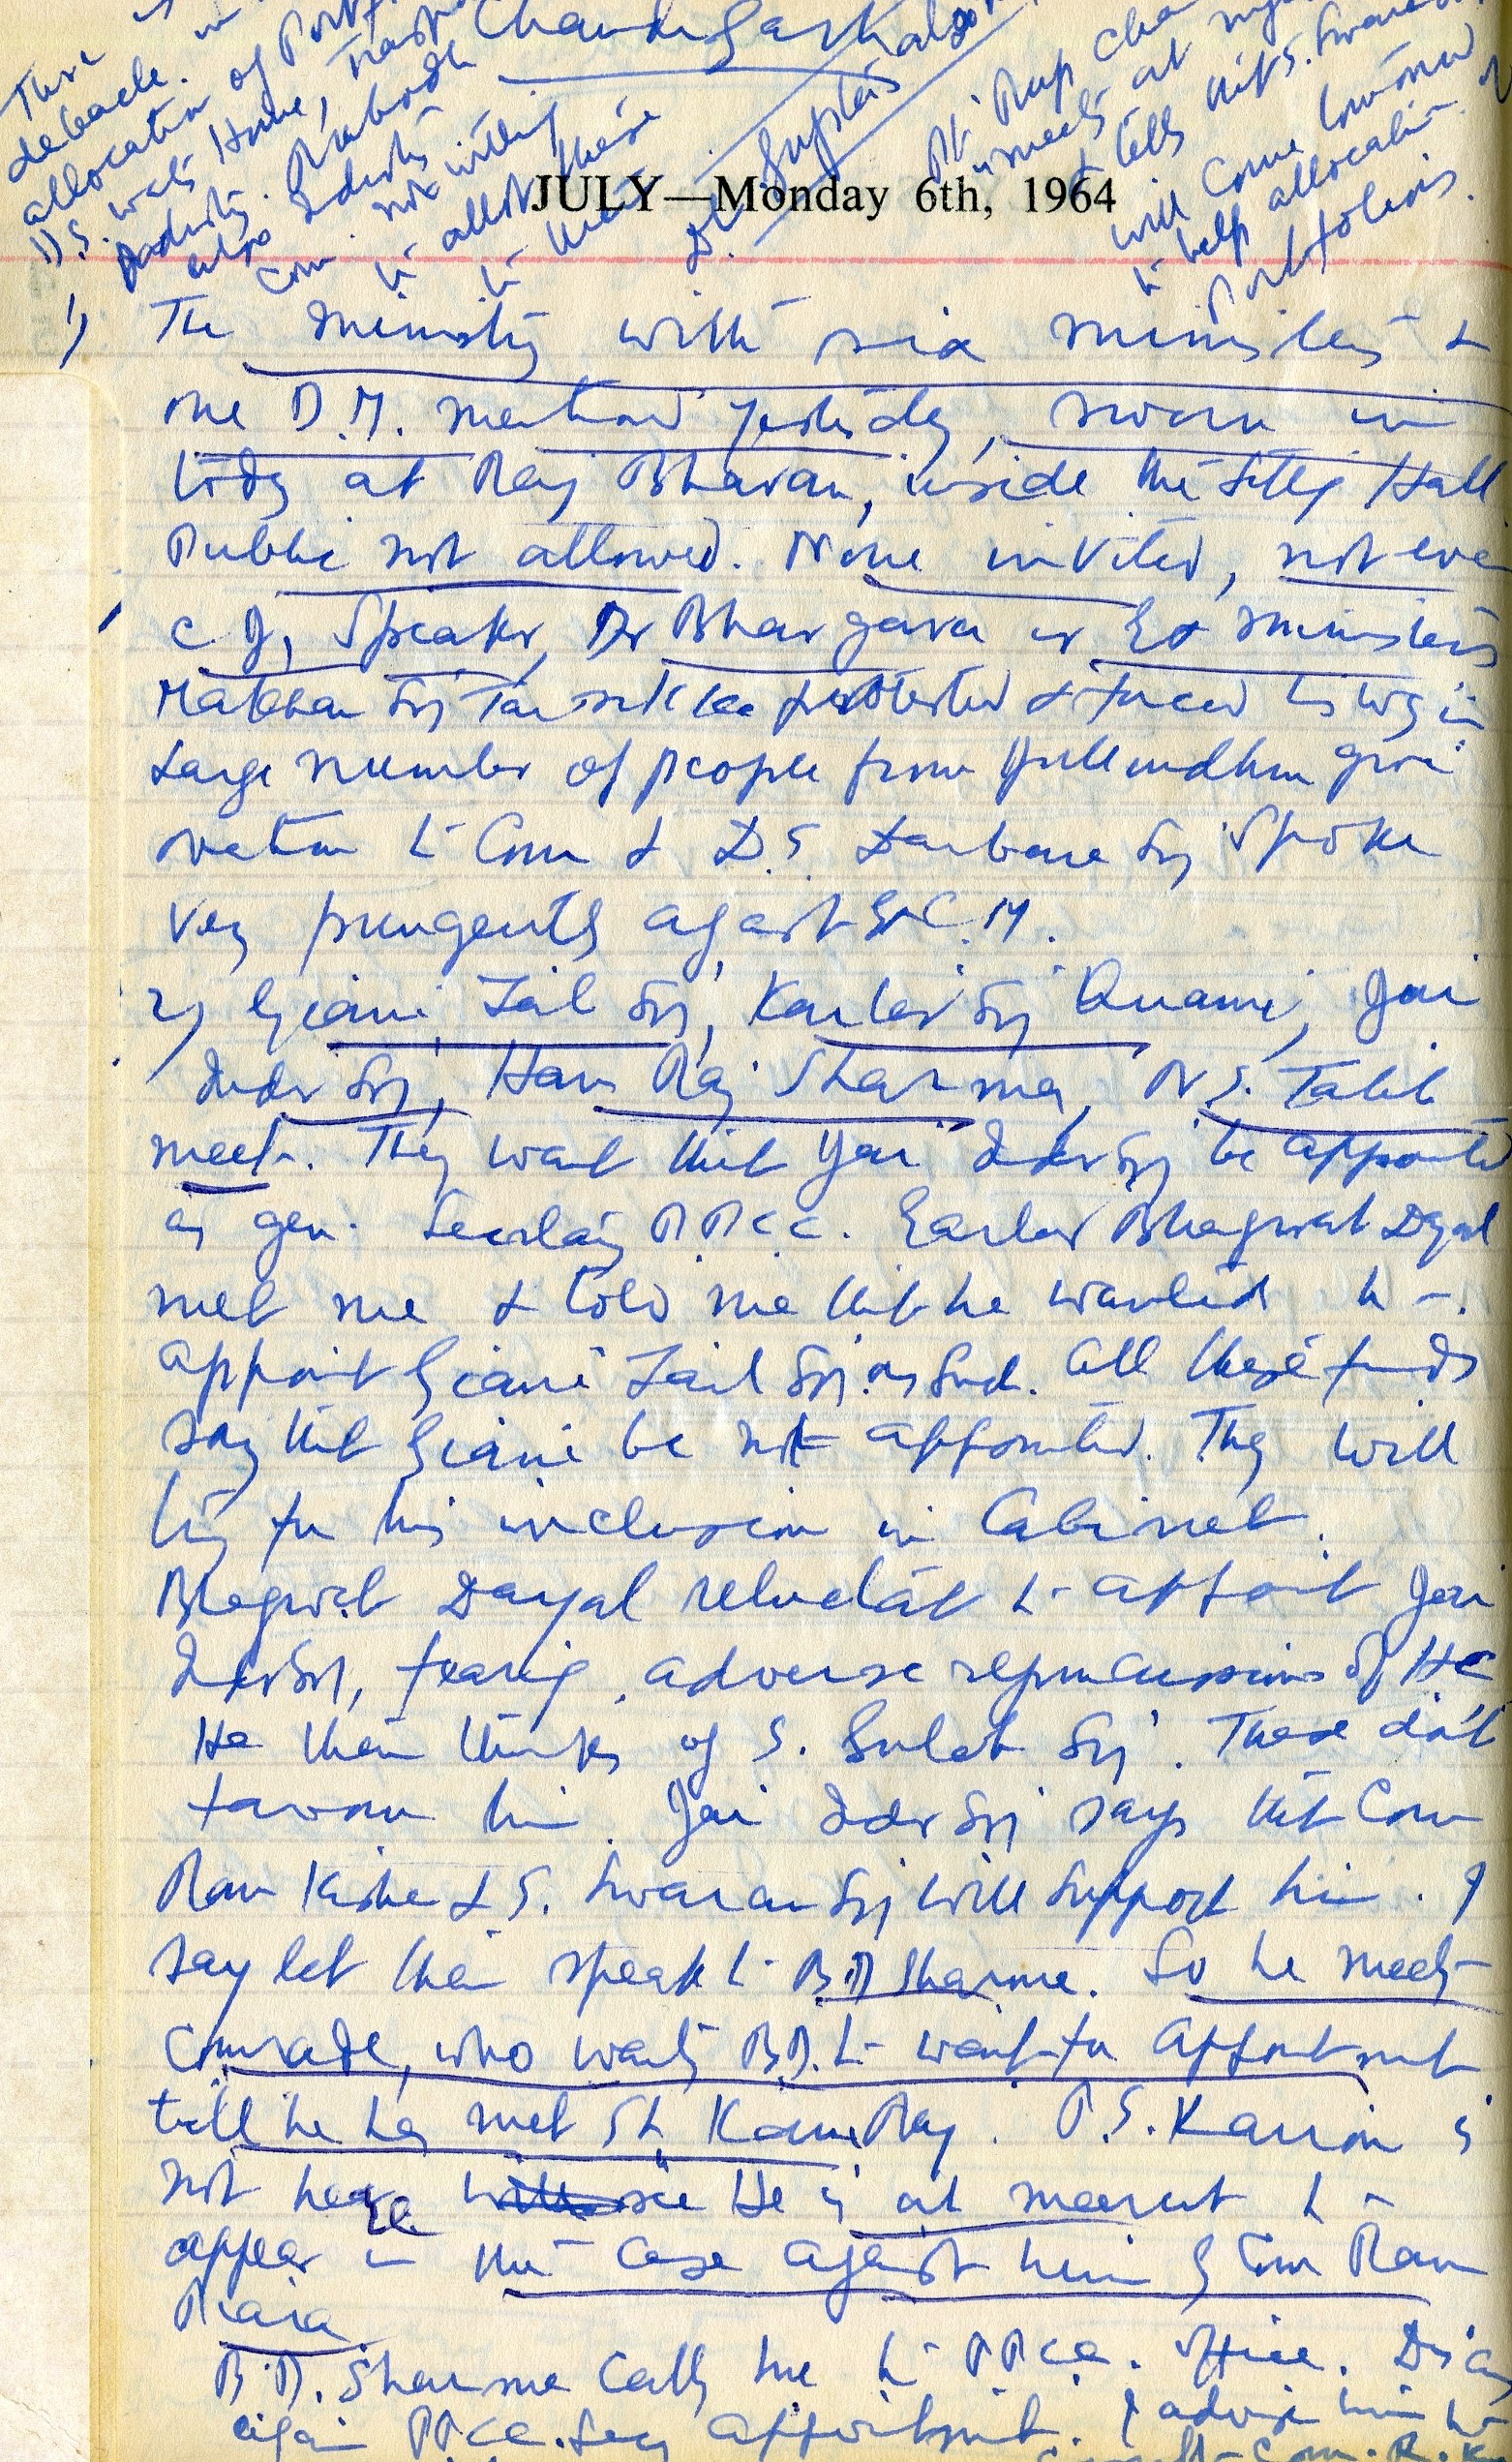 Chandigarh
There
debacle.
allocation of Portf
D.S. wants Home,
Industry. Prabodh
also Industry
Com. not willing
to allot these
to
Pt. Rup Cha
meets at
& tells that S. Swaran
will come tomorrow
to help allocation of
portfolios.
JULY—Monday 6th, 1964
1) The ministry with six ministers &
one D.M. mentioned yesterday, sworn in
today at Raj Bhavan, inside the Sitting Hall
Public not allowed. None invited, not even
C.J., Speaker, Dr Bhargava or Ex ministers
Makhan Sing Tarsikka protested & forced his way in
Large number of people from Jullundhur give
ovation to Com & D.S. Darbara Sing spoke
very pungently against Ex C.M.
2) Giani Zail Sing, Kartar Sing Diwana, Jai
Inder Sing, Hans Raj Sharma, N.S. Talib
meet. They want that Jai Inder Sing be appointed
as gen. Secretary P.P.C.C. Earlier Bhagwat Dyal
met me & told me that he wanted to
appoint Giani Zail Sing as Secd. All these friends
say that Giani be not appointed. They will
try for his inclusion in Cabinet.
Bhagwat Dayal reluctant to appoint Jai
Inder Sing, fearing adverse repercussions of
He then thinks of S. Gulab Sing. These don't
favour him. Jai Inder Sing says that Com
Ram Kishen & S. Swaran Sing will support him. I
say let them speak to B.D Sharma. So he meets
Comrade, who wants B.D. to wait for appointment
till he has met Sh. Kam Raj. P.S. Kairon is
not here He is at meerut to
appear in the case against him by Com Ram
Piara
B.D. Sharma calls me to P.P.C.C. office. Discuss
again P.P.C.C. Secy appointment. I advise him to
Com. R. K